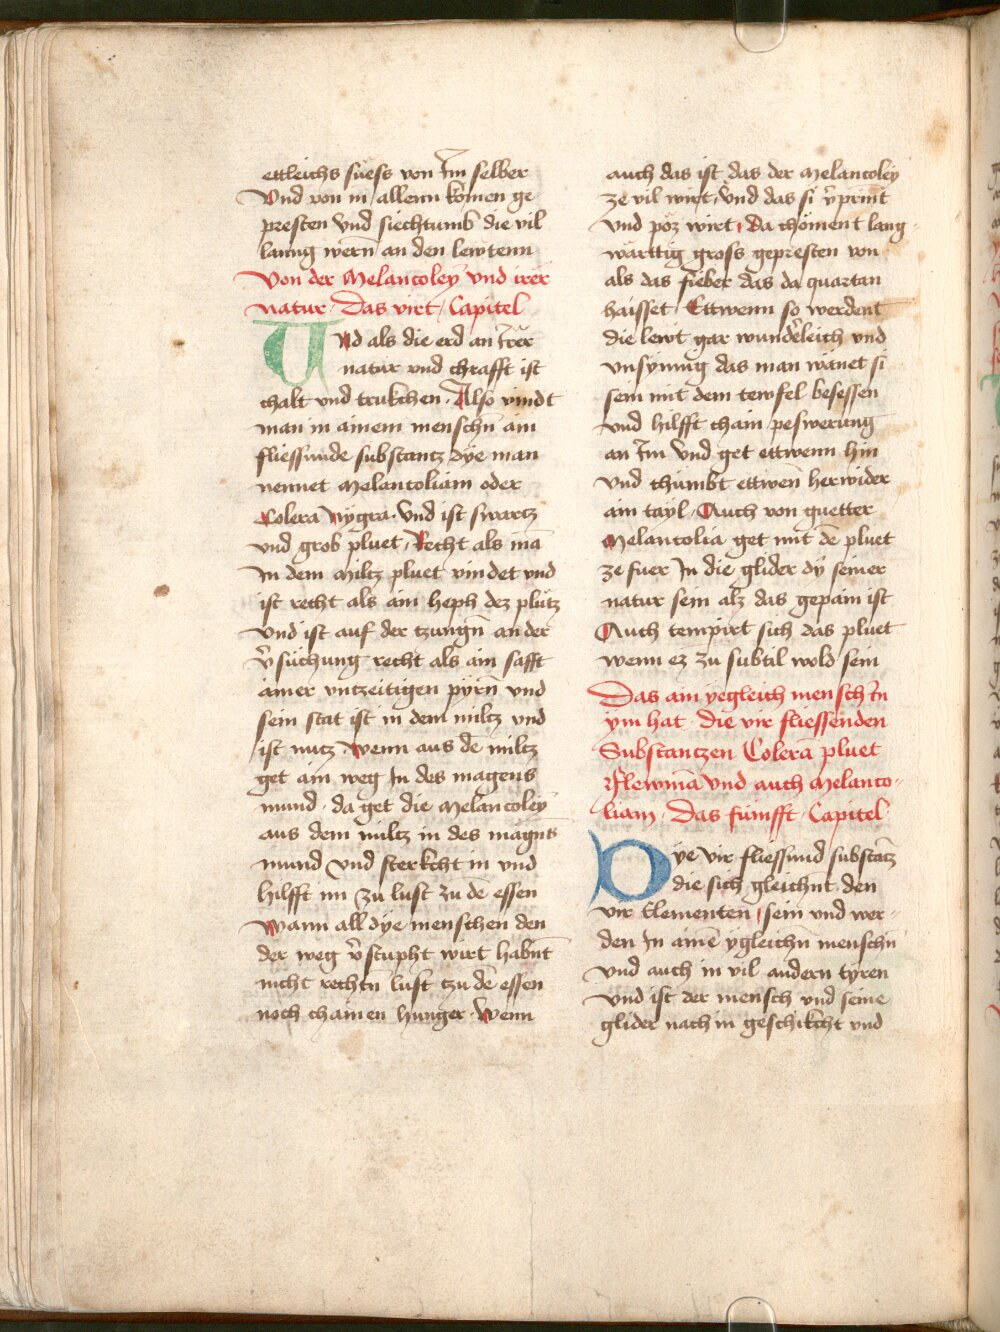 ettleichs suess von Im selber
Vnd von in allenn komen ge
presten Vnd siechtumb die vil
lanng wern an den lewtenn
Von der Melancoley vnd irer
natur · Das virt · Capitel
Vnd als die erd an Irer
natur vnd chrafft ist
chalt vnd trukchen · Also vindt
man in ainem menschn ain
fliessunde substantz dye man
nennet Melancoliam oder
Colera Nygra · Vnd ist swartz
vnd grob pluet / Recht als mā
In dem Miltz pluet vindet vnd
ist recht als ain heph dez plutz
Vnd ist auf der tzungn an der
v̄suchung recht als ain safft
ainer vntzeitigen pyrn vnd
sein stat ist in dem miltz vnd
ist nutz Wenn aus dē miltz
get ain weg In des magens
mund · da get die Melancoley
aus dem miltz in des magns
mund Vnd sterkcht in vnd
hilfft im Zu lust zu dē essen
Wann all dye menschen den
der weg v̄stupht wirt habnt
nicht rechtn lust tzu dē essen
noch chainen hunger · Wenn
auch das ist das der Melancoley
ze vil wirt / Vnd das si v̄print
Vnd pöz wirt / Da chöment lang
wärttig gross gepresten von
als das fieber das da quartan
haisset · Ettwenn so werdent
die lewt gar wunderleich vnd
vnsynnig das man wänet si
sein mit dem tewfel besessen
Vnd hilfft chain peswerung
an Im Vnd get ettwenn hin
Vnd chumbt ettwen herwider
ain tayl / Auch von guetter
Melancolia get mit dē pluet
ze fuer In die glider dy seiner
natur sein alz das gepain ist
Auch tempirt sich das pluet
wenn ez zu subtil wold sein
Das ain yegleich mensch In
ym hat die vir fliessenden
Substantzen Coleram pluet
Flewmā Vnd auch Melanco-
liam · Das fumfft · Capitel
Dye vir fliessund substātz
die sich gleichnt den
vir Elementen / sein vnd wer-
den In ainē ygleichn menschn
Vnd auch in vil andern tyren
Vnd ist der mensch vnd seine
glider nach in geschikcht vnd